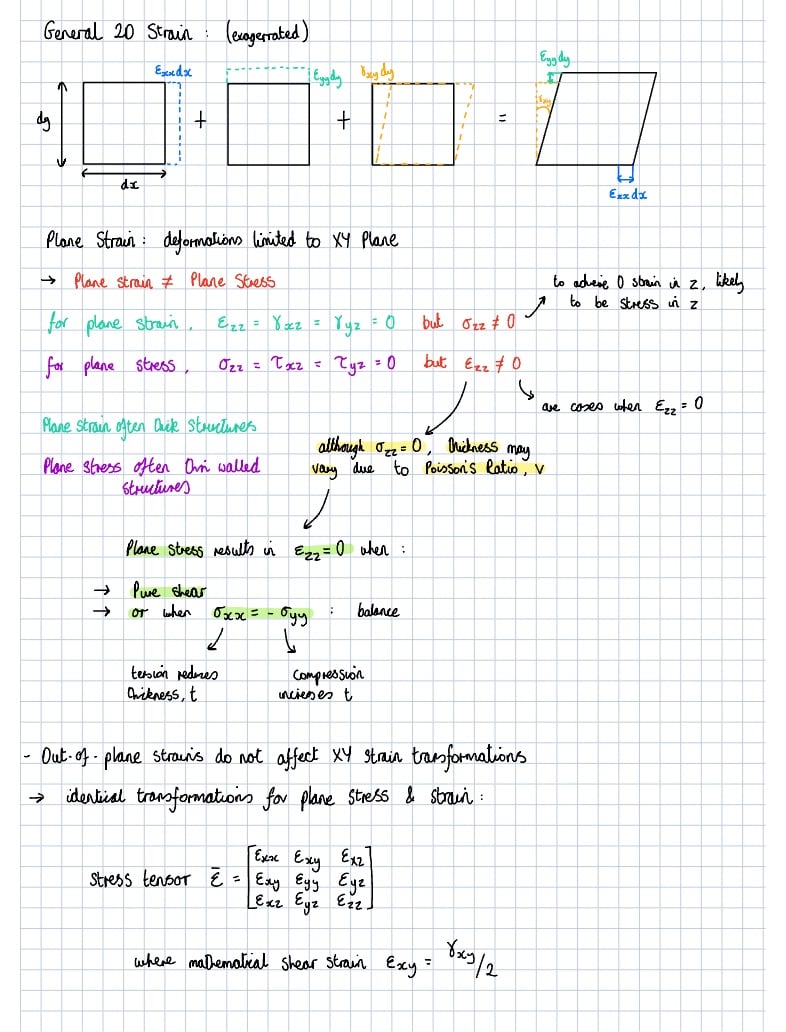 General 2D Strain : (exagerrated)
εxxdx
εyydy
γxydy
εyydy
dy
+
+
=
γxy
dx
εxxdx
Plane Strain : deformations limited to XY Plane
→ Plane strain ≠ Plane Stress
to achieve 0 strain in z, likely
to be stress in z
for plane strain, εzz = γxz = γyz = 0 but σzz ≠ 0
for plane stress, σzz = τxz = τyz = 0 but εzz ≠ 0
are cases when εzz = 0
Plane strain often thick structures
Plane stress often thin walled
structures
although σzz = 0, thickness may
vary due to Poisson's Ratio, ν
Plane stress results in εzz = 0 when :
→ Pure shear
→ or when σxx = - σyy : balance
tension reduces
thickness, t
compression
increases t
- Out-of-plane strains do not affect XY strain transformations
→ identical transformations for plane stress & strain :
εxx εxy εxz
Stress tensor ε̄ = εxy εyy εyz
εxz εyz εzz
where mathematical shear strain εxy = γxy/2